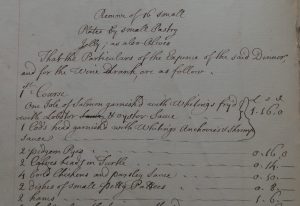 Remove of 16 small
Plates by small Pastry
Jelly; as also Olives
That the Particulars of the Expence of the said Dinner,
and for the Wine drank, are as follow.
1st Course
One Jole of Salmon garnished with Whitings fry'd
with Lobster & oyster Sauce £ s d 1. 16. 0
1 Cods head garnished with Whitings Anchovies & Shrimp
Sauce
2 pidgeon Pyes 0. 16. 0
2 Calves heads in Turtle 0. 14.
4 boild Chickens and parsley Sauce 0. 10.
2 dishes of small Patty Pattees 0. 8.
2 hams 1. 6.